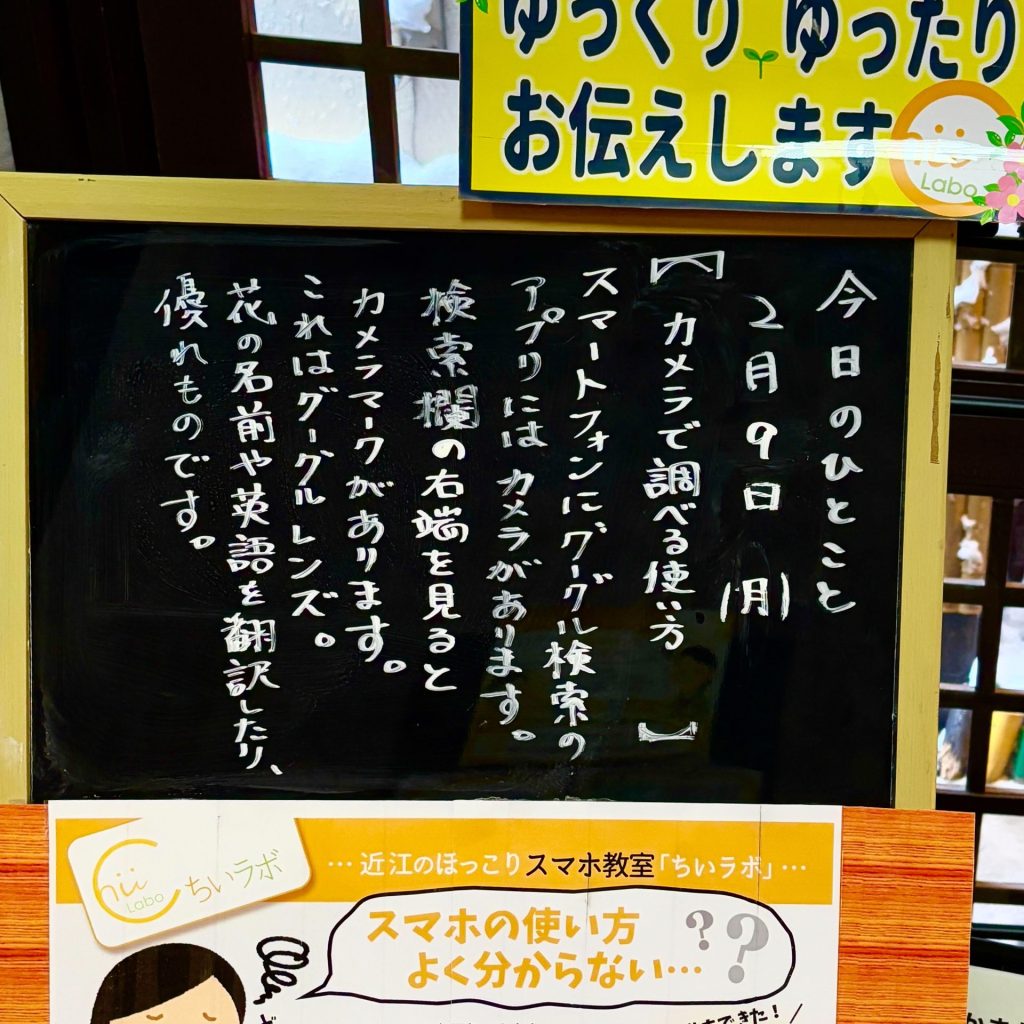 ゆっくり ゆったり
お伝えします
Labo
今日のひとこと
2月9日(月)
【カメラで調べる使い方】
スマートフォンにグーグル検索の
アプリにはカメラがあります。
検索欄の右端を見ると
カメラマークがあります。
これはグーグルレンズ。
花の名前や英語を翻訳したり、
優れものです。
Chii
Labo
ちいラボ
…近江のほっこりスマホ教室「ちいラボ」…
スマホの使い方
よく分からない…??
できた!